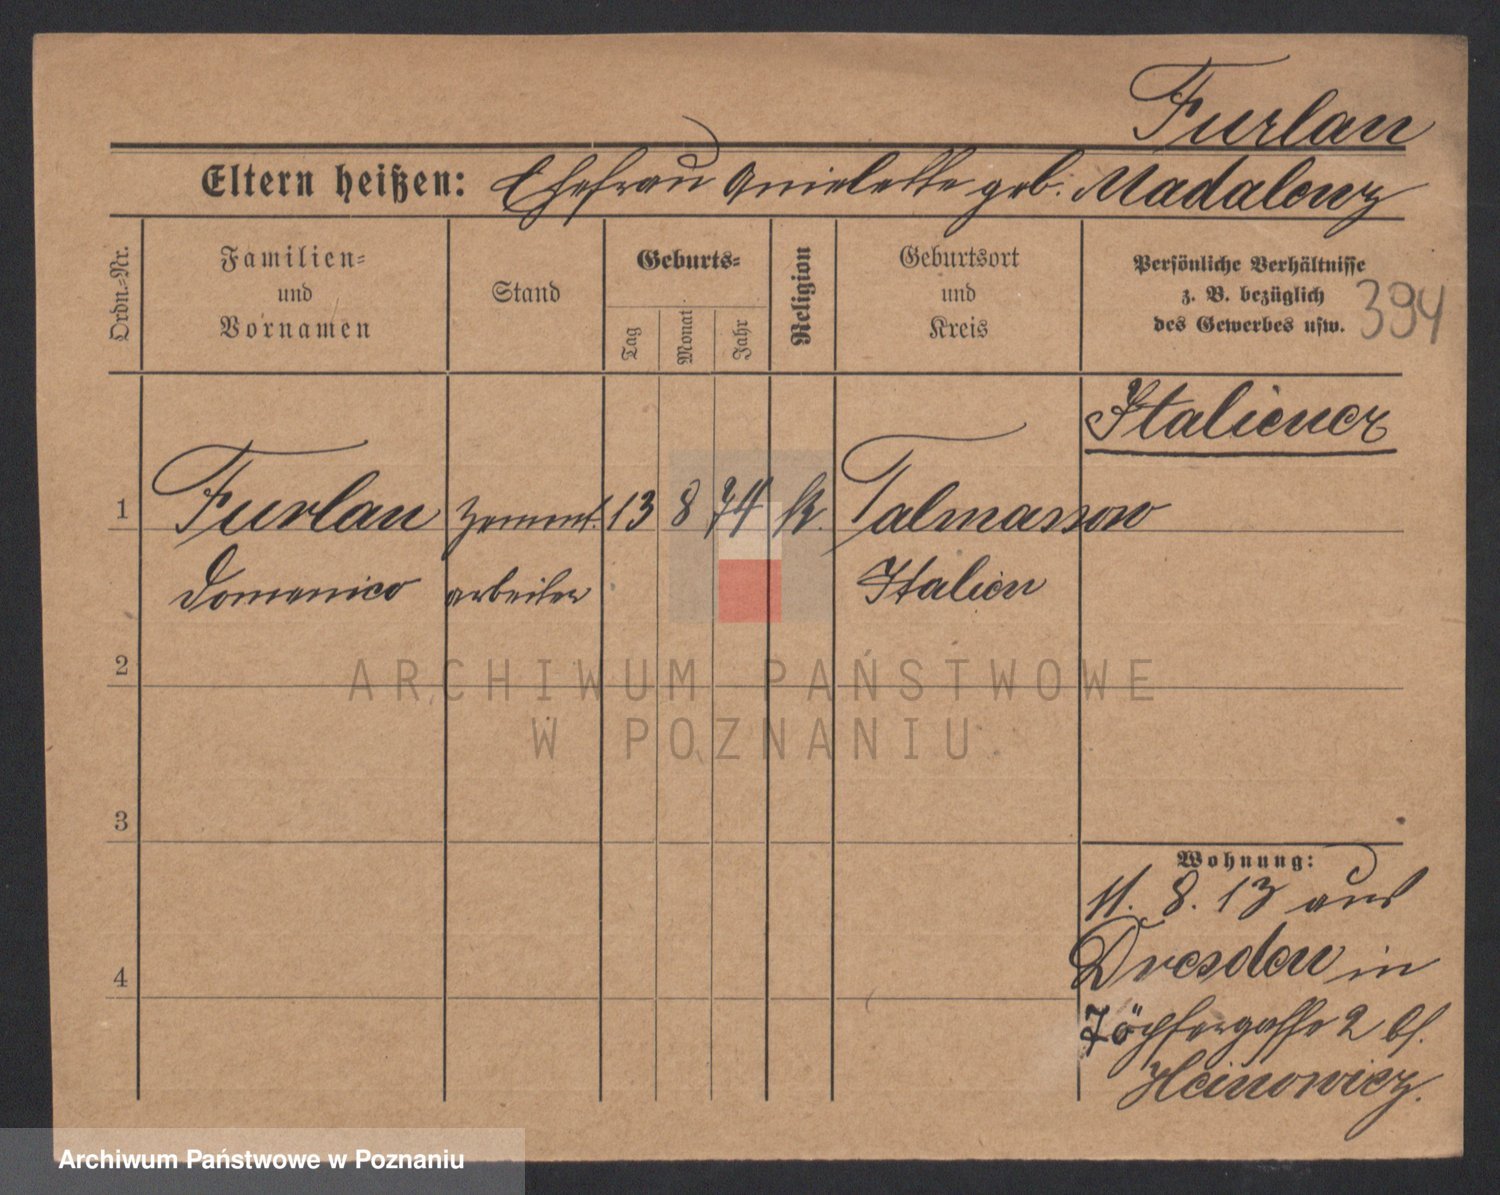 Furlan
Eltern heißen: Ehefrau Anielette geb. Madalenz
Ordn.-Nr.
Familien-
und
Vornamen
Stand
Geburts-
Tag
Monat
Jahr
Religion
Geburtsort
und
Kreis
Persönliche Verhältnisse
z. B. bezüglich
des Gewerbes usw.
394
Italiener
1 Furlan Zement. 13 8 74 k. Talmassow
Domenico arbeiter Italien
2
ARCHIWUM PAŃSTWOWE
W POZNANIU
3
Wohnung:
11. 8. 13 aus
Dresden in
4
Töpfergasse 2 bf.
Heinowicz.
Archiwum Państwowe w Poznaniu